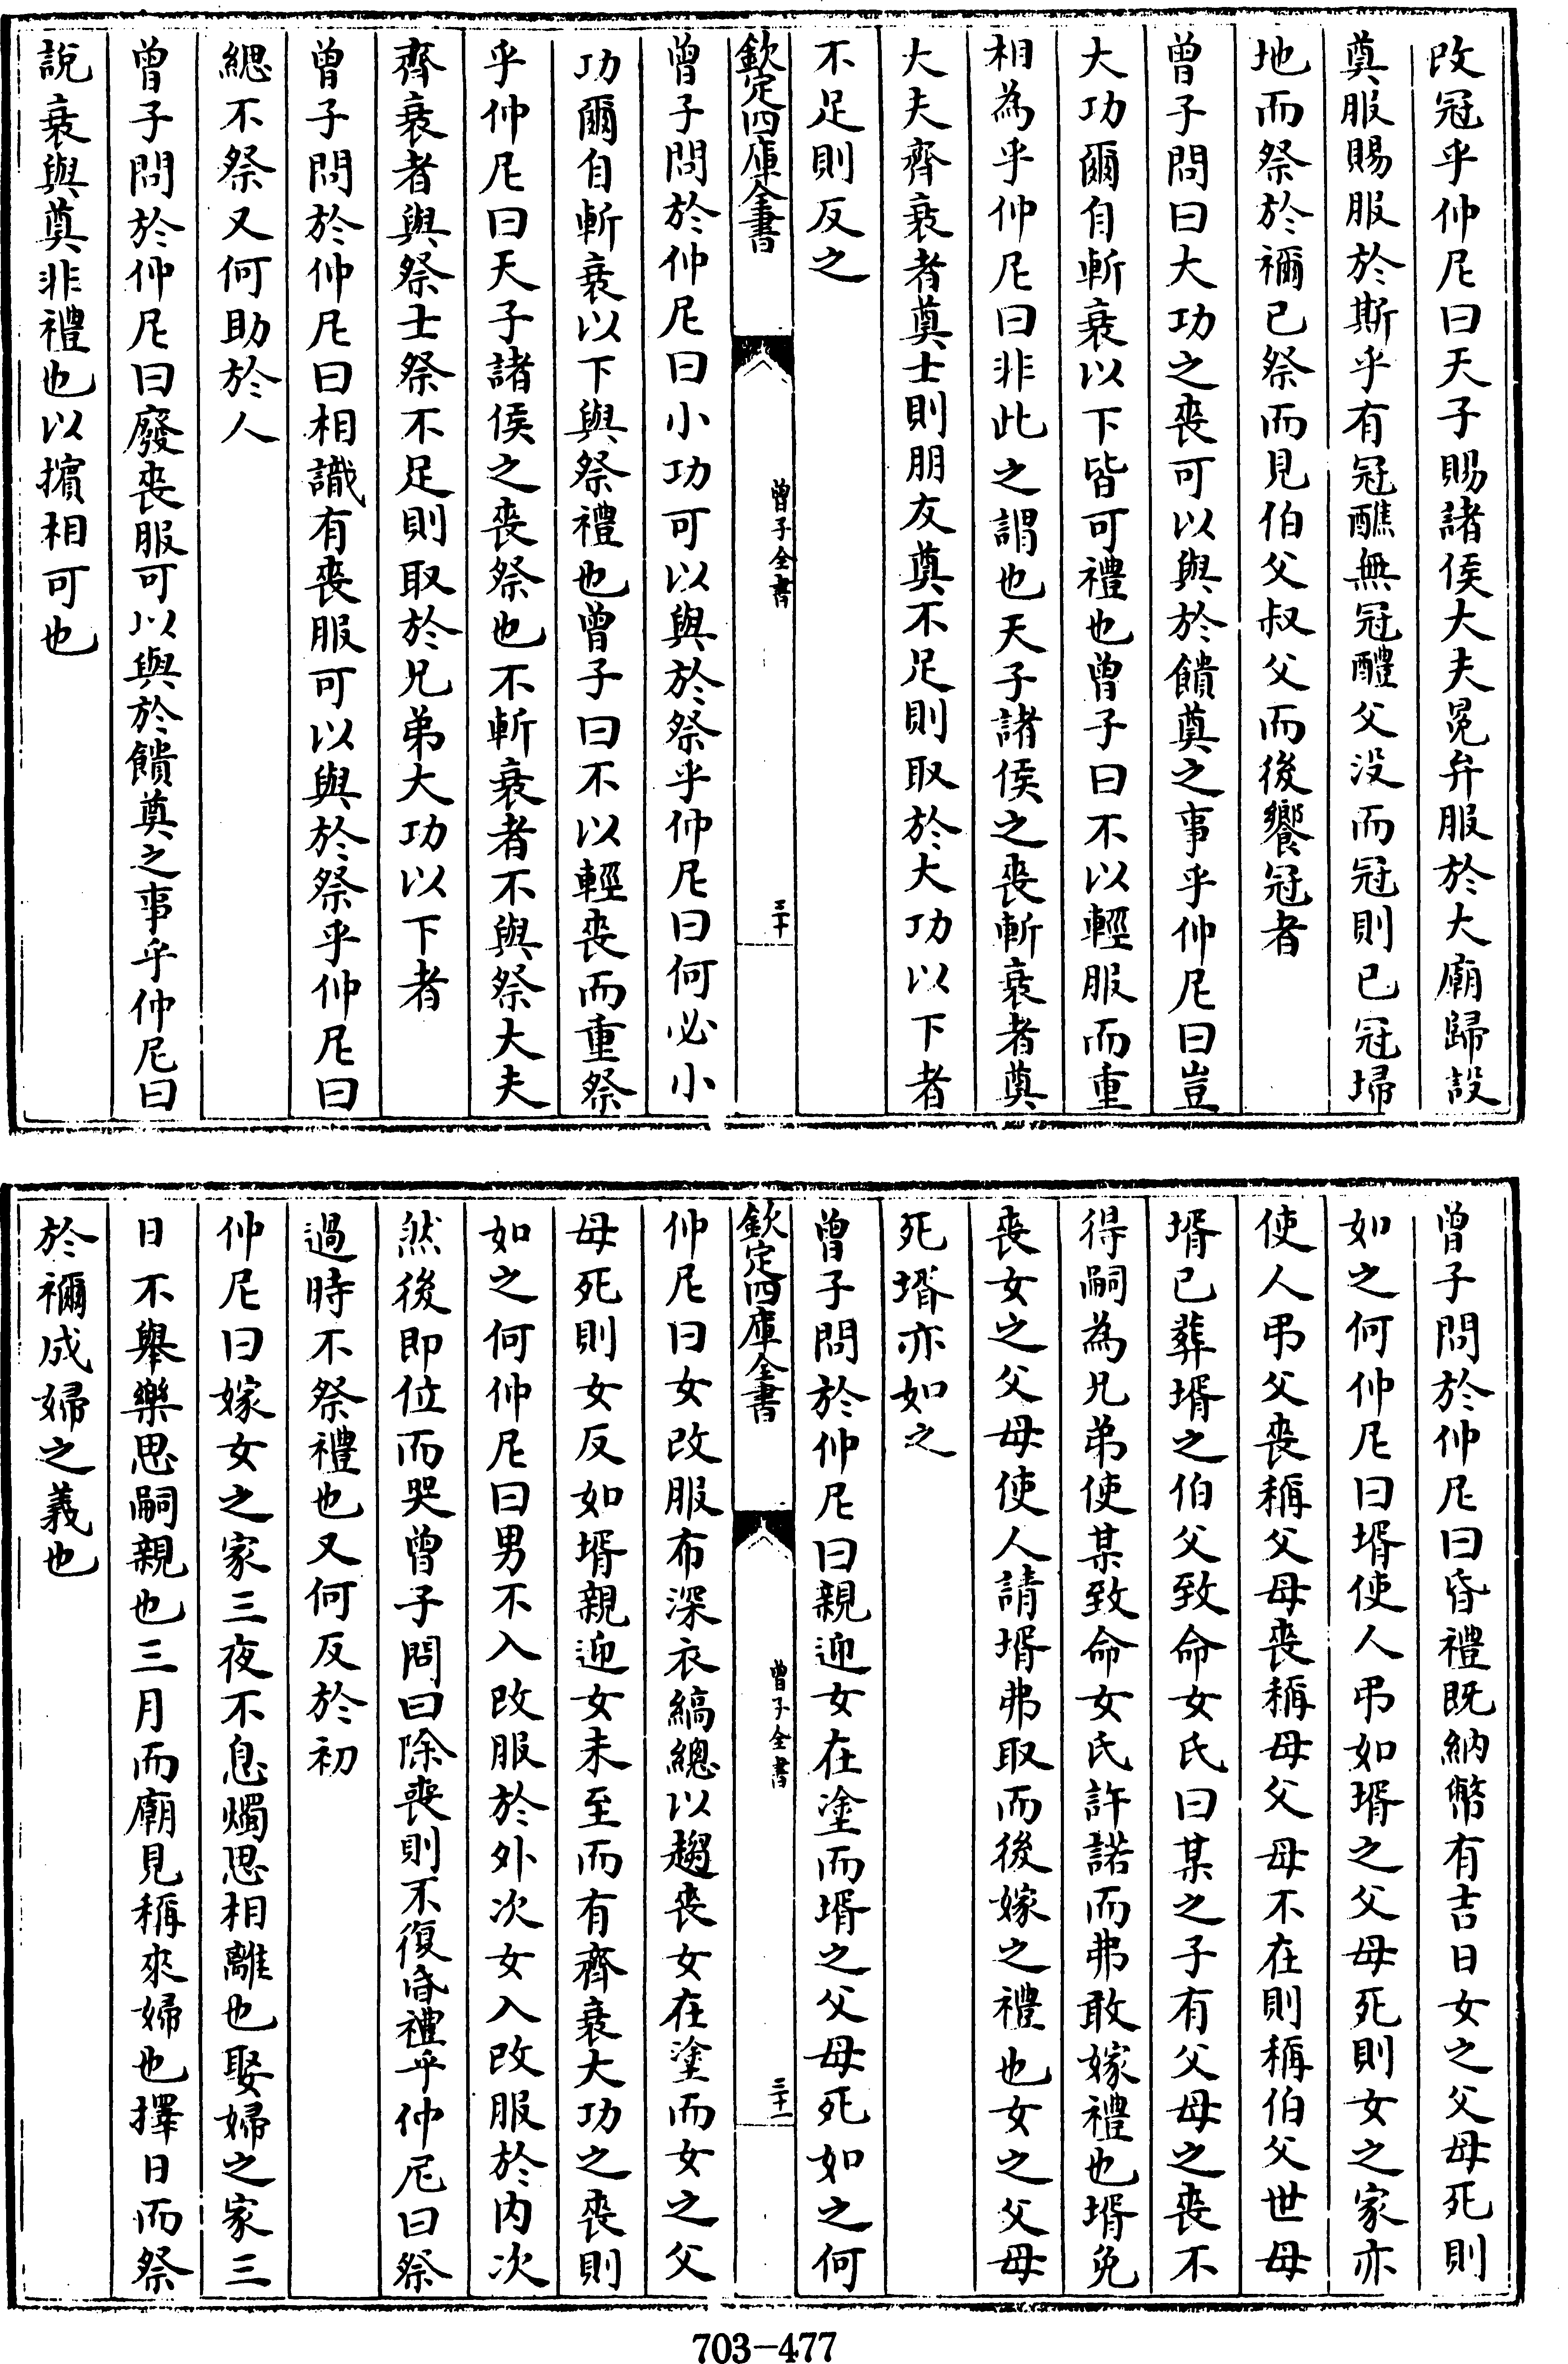 改冠乎仲尼曰天子賜諸侯大夫冕弁服於大廟歸設
奠服賜服於斯乎有冠醮無冠醴父没而冠則已冠埽
地而祭於禰已祭而見伯父叔父而後饗冠者
曾子問曰大功之喪可以與於饋奠之事乎仲尼曰豈
大功爾自斬衰以下皆可禮也曾子曰不以輕服而重
相為乎仲尼曰非此之謂也天子諸侯之喪斬衰者奠
大夫齊衰者奠士則朋友奠不足則取於大功以下者
不足則反之
欽定四庫全書
曾子全書
三十
曾子問於仲尼曰小功可以與於祭乎仲尼曰何必小
功爾自斬衰以下與祭禮也曾子曰不以輕喪而重祭
乎仲尼曰天子諸侯之喪祭也不斬衰者不與祭大夫
齊衰者與祭士祭不足則取於兄弟大功以下者
曾子問於仲尼曰相識有喪服可以與於祭乎仲尼曰
緦不祭又何助於人
曾子問於仲尼曰廢喪服可以與於饋奠之事乎仲尼曰
說衰與奠非禮也以擯相可也
曾子問於仲尼曰昏禮既納幣有吉日女之父母死則
如之何仲尼曰壻使人弔如壻之父母死則女之家亦
使人弔父喪稱父母喪稱母父母不在則稱伯父世母
壻已葬壻之伯父致命女氏曰某之子有父母之喪不
得嗣為兄弟使某致命女氏許諾而弗敢嫁禮也壻免
喪女之父母使人請壻弗取而後嫁之禮也女之父母
死壻亦如之
曾子問於仲尼曰親迎女在塗而壻之父母死如之何
欽定四庫全書
曾子全書
三十一
仲尼曰女改服布深衣縞總以趨喪女在塗而女之父
母死則女反如壻親迎女未至而有齊衰大功之喪則
如之何仲尼曰男不入改服於外次女入改服於内次
然後即位而哭曾子問曰除喪則不復昏禮乎仲尼曰祭
過時不祭禮也又何反於初
仲尼曰嫁女之家三夜不息燭思相離也娶婦之家三
日不舉樂思嗣親也三月而廟見稱來婦也擇日而祭
於禰成婦之義也
703-477